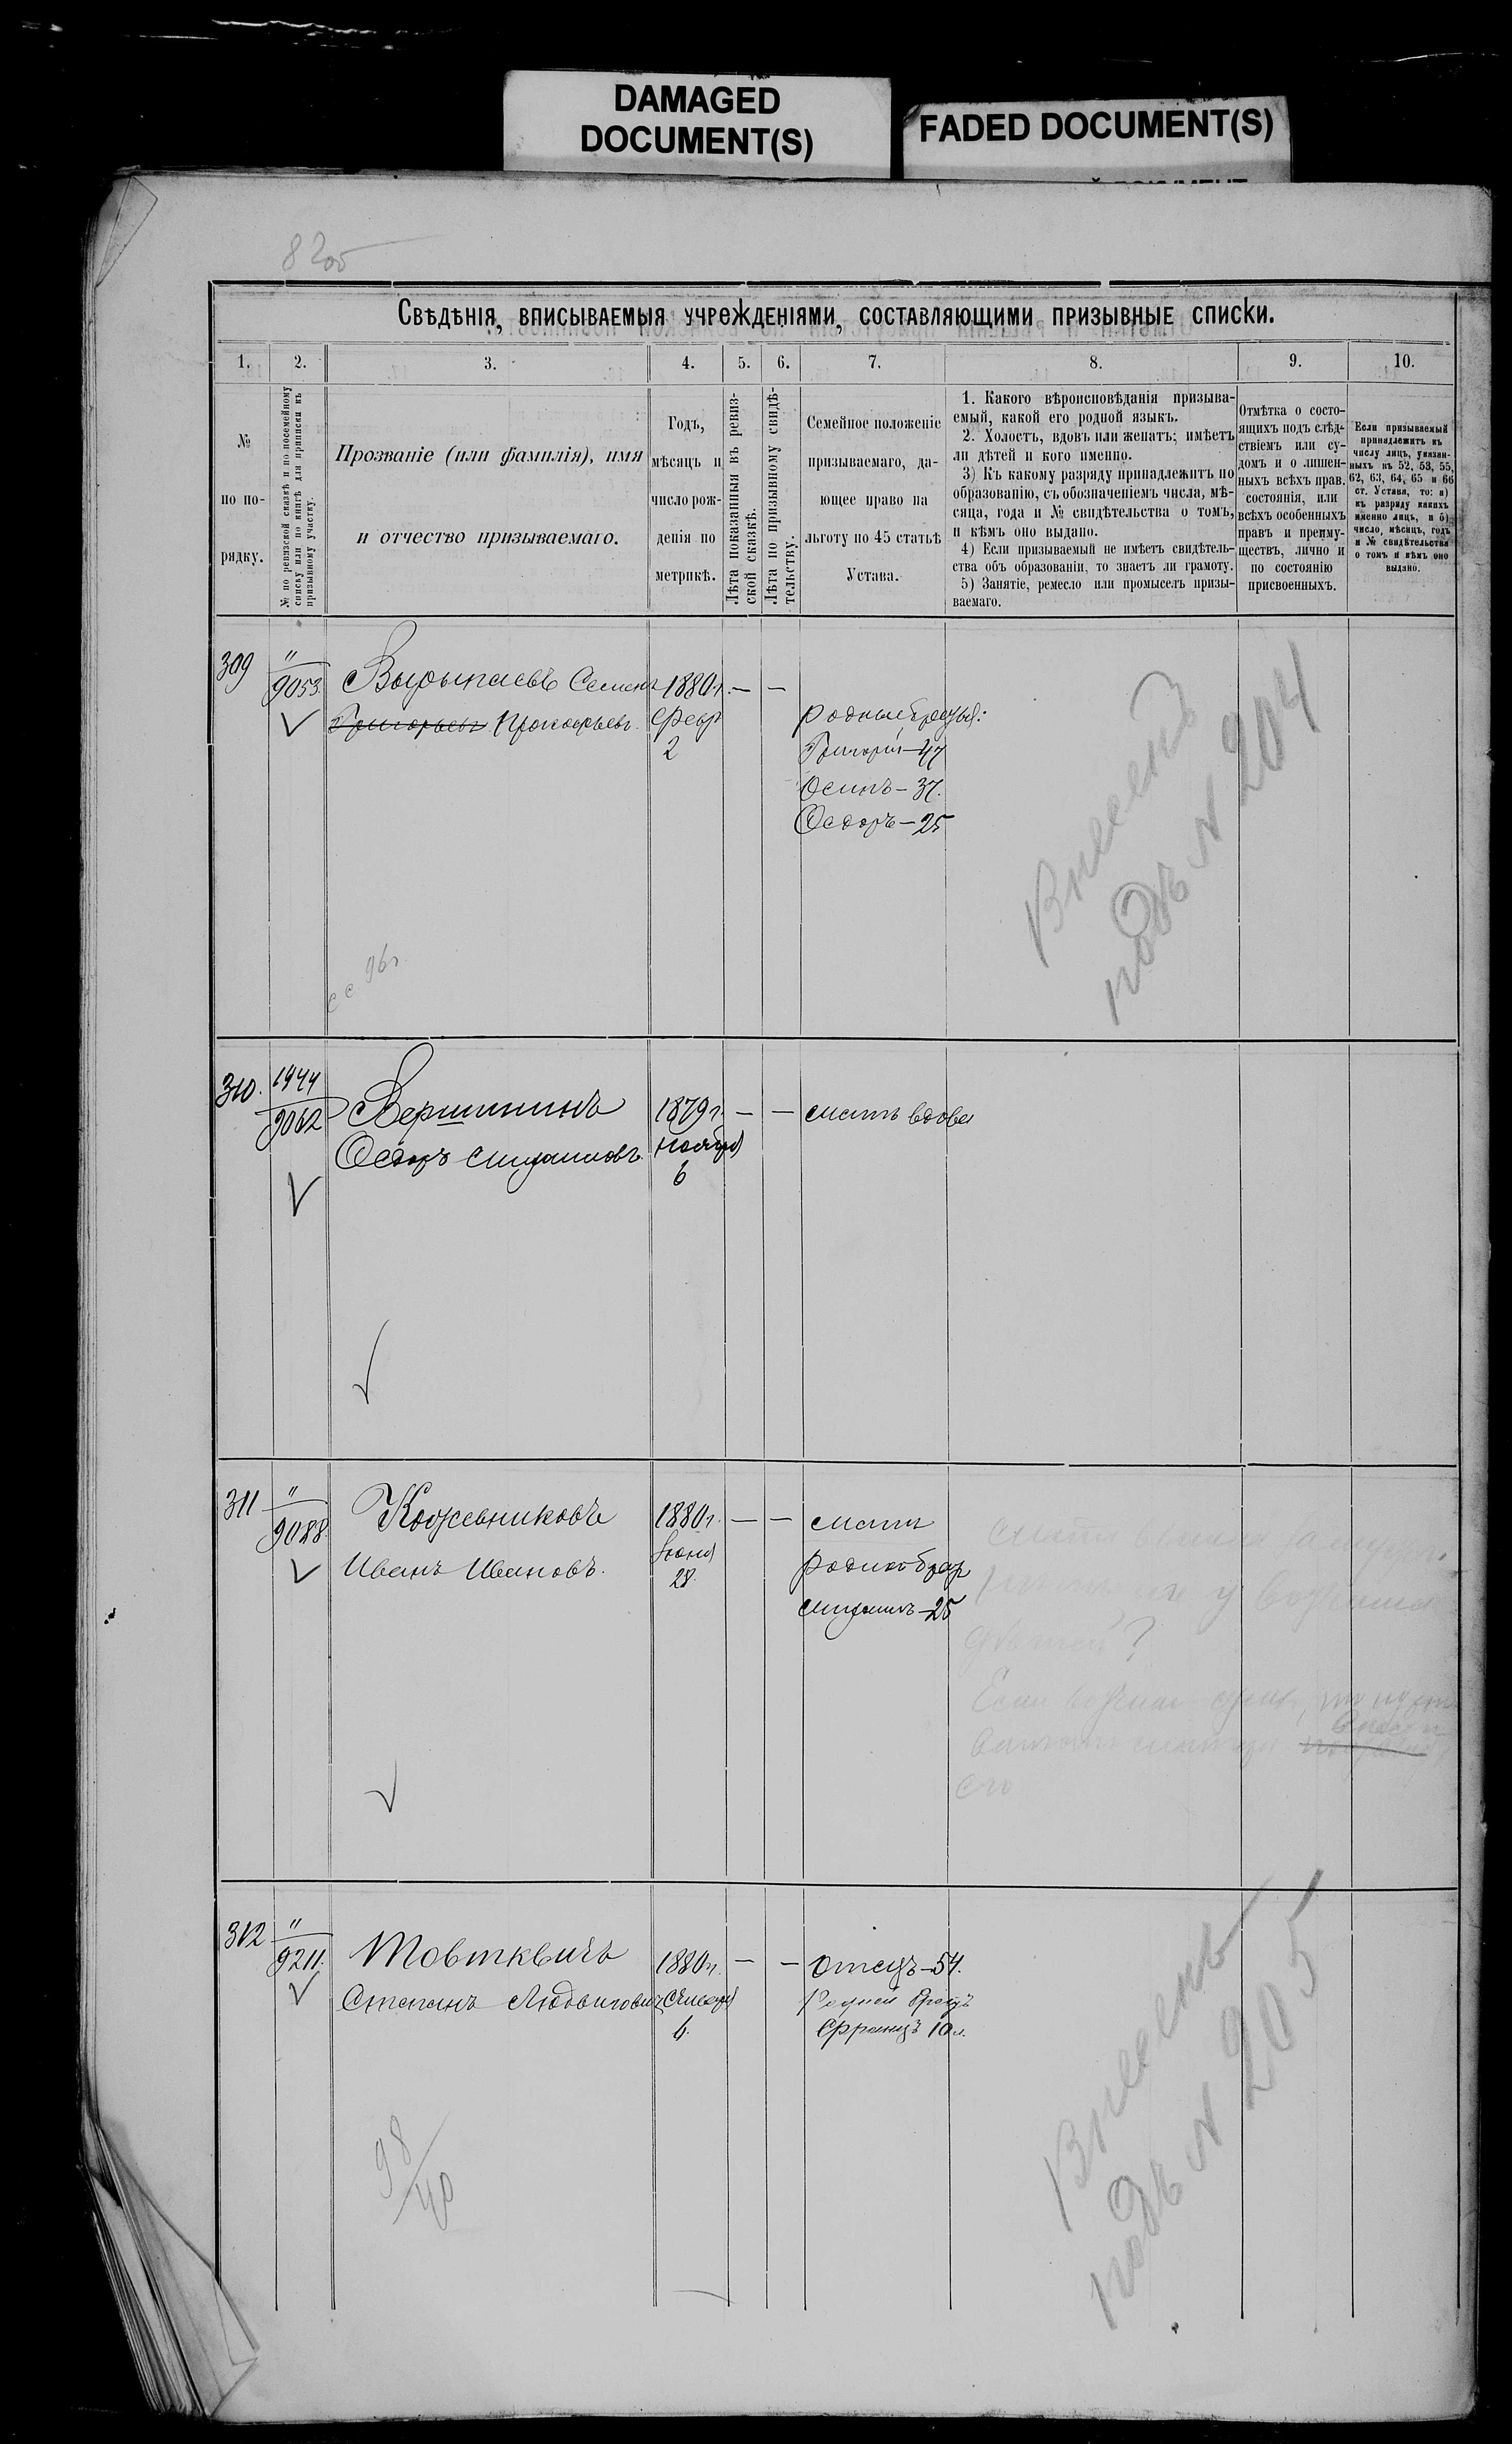 DAMAGED
DOCUMENT(S)
FADED DOCUMENT(S)
Свѣдѣнія, вписываемыя учрежденіями, составляющими призывные списки.
1. 2. 3. 4. 5. 6. 7. 8. 9. 10.
№
по по-
рядку.
№ по ревизской сказкѣ и по посемейному
списку или по книгѣ для приписки къ
призывному участку.
Прозваніе (или фамилія), имя
и отчество призываемаго.
Годъ,
мѣсяцъ и
число рож-
денія по
метрикѣ.
Лѣта показанныя въ ревиз-
ской сказкѣ.
Лѣта по призывному свидѣ-
тельству.
Семейное положеніе
призываемаго, да-
ющее право на
льготу по 45 статьѣ
Устава.
1. Какого вѣроисповѣданія призыва-
емый, какой его родной языкъ.
2. Холостъ, вдовъ или женатъ; имѣетъ
ли дѣтей и кого именно.
3) Къ какому разряду принадлежитъ по
образованію, съ обозначеніемъ числа, мѣ-
сяца, года и № свидѣтельства о томъ,
и кѣмъ оно выдано.
4) Если призываемый не имѣетъ свидѣтель-
ства объ образованіи, то знаетъ ли грамоту.
5) Занятіе, ремесло или промыселъ призы-
ваемаго.
Отмѣтка о состо-
ящихъ подъ слѣд-
ствіемъ или су-
домъ и о лишен-
ныхъ всѣхъ прав.
состоянія, или
всѣхъ особенныхъ
правъ и преиму-
ществъ, лично и
по состоянію
присвоенныхъ.
Если призываемый
принадлежитъ къ
числу лицъ, указан-
ныхъ въ 52, 53, 55,
62, 63, 64, 65 и 66
ст. Устава, то: а)
къ разряду какихъ
именно лицъ, и б)
число, мѣсяцъ, годъ
и № свидѣтельства
о томъ и кѣмъ оно
выдано.
309
"
9053
Вырыпаевъ Семенъ
Григорьевъ Прокофьевъ
1880 г.
Февр
2
— —
родные братья:
Григорій — 47
Осипъ — 37.
Ѳедоръ — 25
Внесенъ
подъ № 204
310.
1944
9062
Вершининъ
Ѳедоръ
1879 г.
Ноября
6
— —
мать вдова
311
"
9088
Кожевниковъ
Иванъ Ивановъ.
1880 г.
Іюня
28.
— —
мать
25
312
"
9211.
Товтквичъ
Степанъ Людвиговъ
1880 г.
6.
— —
отецъ — 54.
Родной братъ
Францъ 10 л.
98/40
Внесенъ
подъ № 205